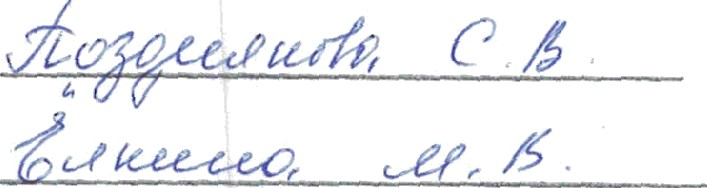 Позднякова С.В.
Ёлкина М.В.